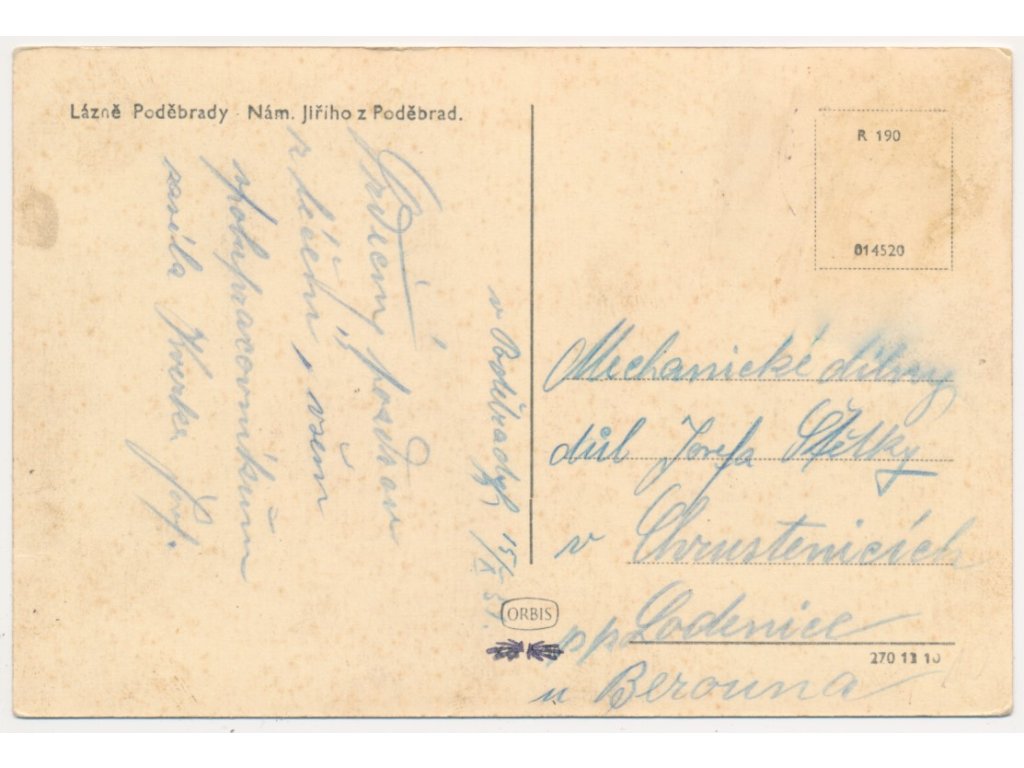 Lázně Poděbrady · Nám. Jiřího z Poděbrad.
v Poděbradech 15/X 51.
Srdečný pozdrav
z léčení, všem
spolupracovníkům
zasílá Josef.
R 190
014520
Mechanické dílny
důl Josefa Štětky
v Chrustenicích
pp Lodenice
u Berouna
ORBIS
270 12 10